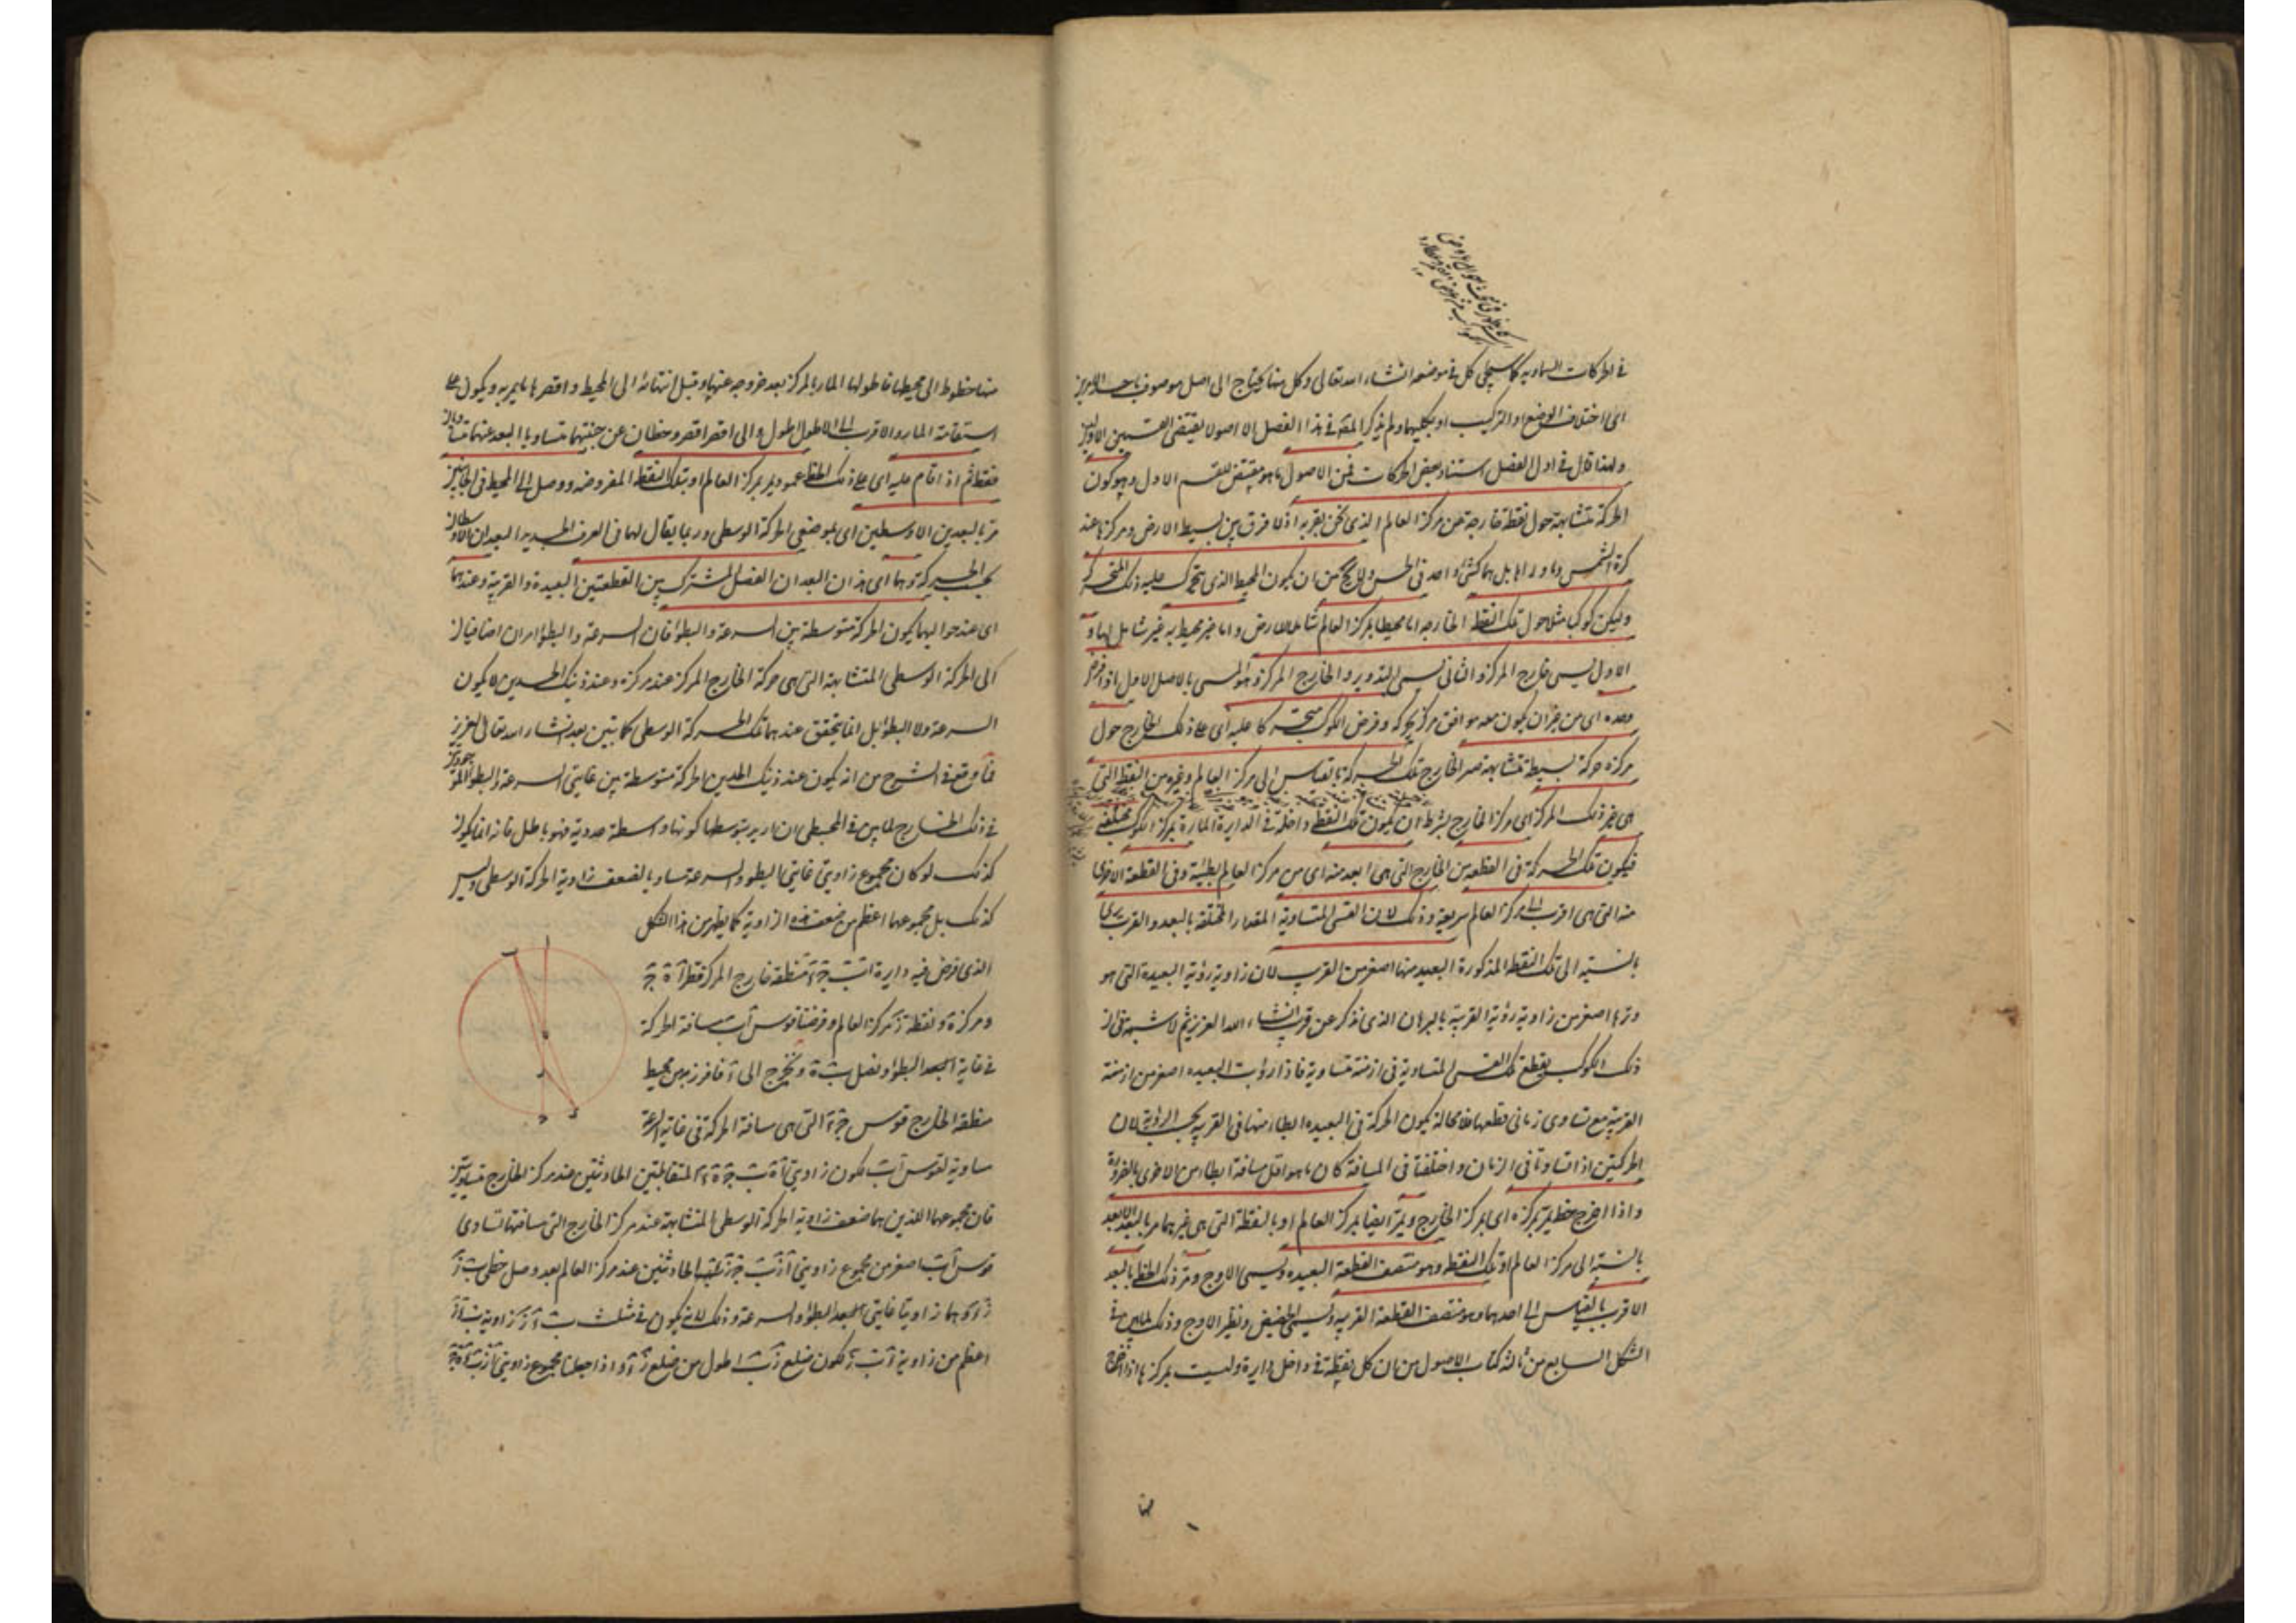 في الحركات السماوية كما سيجئ كل في موضعه انشاء الله تعالى وكل منها يحتاج الى اصل موصوف
اى اختلاف الوضع او التركيب او بكليهما ولم يذكر المصنف في هذا الفصل الا اصولا يقتضى القسمين
ولهذا قال في اول الفصل استناد بعض الحركات فمن الاصول ما هو مقتض للقسم الاول وهو كون
الحركة متشابهة حول نقطة خارجة عن مركز العالم الذى نحن بقربه اذ لا فرق بين بسيط الارض ومركزها عند
كرة الشمس وما وراها بل هما كشئ واحد في الحس ولا يخ من ان يكون المحيط الذى يتحرك عليه ذلك المتحرك
وليكن كوكبا مثلا حول تلك النقطة الخارجة اما محيطا بمركز العالم شاملا للارض واما غير محيط به غير شامل لها و
الاول يسمى خارج المركز والثانى يسمى التدوير والخارج المركز وهو المسمى بالاصل الاول اذا فرض
وحده اى من غير ان يكون معه موافق مركز يحركه وفرض الكوكب متحركا عليه اى على ذلك الخارج حول
مركزه حركة بسيطة متشابهة صير الخارج تلك الحركة بالقياس الى مركز العالم وغيره من النقط التى
هى غير ذلك المركز اى مركز الخارج بشرط ان يكون تلك النقطة داخلة في الدايرة المارة بمركز الكوكب مختلفة
فيكون تلك الحركة في القطعة من الخارج التى هى ابعد منه اى من مركز العالم بطيئة وفي القطعة الاخرى
منه التى هى اقرب الى مركز العالم سريعة وذلك لان القسى المتساوية المقدار المختلفة بالبعد والقرب يرى
بالنسبة الى تلك النقطة المذكورة البعيد منها اصغر من القريب لان زاوية رؤية البعيدة التى هو
وترها اصغر من زاوية رؤية القريبة بالبرهان الذى نذكر عن قرب انشاء الله العزيز ثم لا شبهة في ان
ذلك الكوكب يقطع تلك القسى المتساوية في ازمنة متساوية فاذا رؤيت البعيده اصغر من ازمنة
القريبة مع تساوى زمانى قطعهما فلا محالة يكون الحركة في البعيده ابطا منها في القريبه بحسب الرؤية لان
الحركتين اذا تساوتا في الزمان واختلفتا في المسافة كان ما هو اقل مسافة ابطا من الاخرى بالضرورة
واذا اخرج خط يمر بمركزه اى بمركز الخارج ويمر ايضا بمركز العالم او بالنقطة التى هى غيرهما مر بالبعد الابعد
بالنسبة الى مركز العالم او تلك النقطة وهو منتصف القطعة البعيده ويسمى الاوج ومر ذلك الخط بالبعد
الاقرب بالقياس الى احدهما وهو منتصف القطعة القريبه ويسمى الحضيض ونظير الاوج وذلك لما بين في
الشكل السابع من ثالثة كتاب الاصول من ان كل نقطة في داخل دايرة وليست بمركزها اذا اخرج
منها
منها خطوط الى محيطها فاطولها المار بالمركز بعد خروجه عنها وقبل انتهائه الى المحيط واقصرها ما يمر به ويكون على
استقامة المار والاقرب الى الاطول اطول والى اقصر اقصر وخطان عن جنبتيهما متساويا البعد عنهما متساويان
فقط ثم اذا قام عليه اى على ذلك الخط عمود يمر بمركز العالم او بتلك النقطة المفروضه ووصل الى المحيط في الجانبين
مر بالبعدين الاوسطين اى بموضعى الحركة الوسطى وربما يقال لهما في العرف الجديد البعدان الاوسطان
بحسب المسير كونهما اى هذان البعدان الفصل المشترك بين القطعتين البعيدة والقريبة وعندهما
اى عند حواليهما يكون الحركة متوسطة بين السرعة والبطؤ فان السرعة والبطؤ امران اضافيان
الى الحركة الوسطى المتشابهة التى هى حركة الخارج المركز عند مركزه وعند ذينك الحدين لا يكون
السرعة ولا البطؤ بل انما يتحقق عندهما تلك الحركة الوسطى كما بتبين بعد انشاء الله تعالى العزيز
فما وقع في الشرح من انه يكون عند ذينك الحدين الحركة متوسطة بين غايتى السرعة والبطؤ
في ذلك الخارج لما بين في المجسطى ان اريد بتوسطها كونها واسطة عددية فهو باطل فانه انما يكون
كذلك لو كان مجموع زاويتى غايتى البطؤ والسرعة مساويا لضعف زاوية الحركة الوسطى وليس
كذلك بل مجموعهما اعظم من ضعف هذه الزاوية كما يظهر من هذا الشكل
الذى فرض فيه دايرة ا ب ج د منطقة خارج المركز قطرها ا ه ج
ومركزه ه ونقطة ز مركز العالم وفرضنا قوس ا ب مسافة الحركة
في غاية البطؤ ونصل ب ه ونخرج الى د فافرز من محيط
منطقة الخارج قوس ج د التى هى مسافة الحركة في غاية السرعة
مساوية لقوس ا ب لكون زاويتى ا ه ب ج ه د المتقابلتين الحادثتين عند مركز الخارج متساويتين
فان مجموعهما اللذين هما ضعف زاوية الحركة الوسطى المتشابهة عند مركز الخارج التى مسافتها تساوى
قوس ا ب اصغر من مجموع زاويتى ا ز ب ج ز د الحادثتين عند مركز العالم بعد وصل خطى ب ز
ز د وهما زاويتا غايتى البطؤ والسرعة وذلك لانه يكون في مثلث ب د ز زاوية ب د ز
اعظم من زاوية د ب ز لكون ضلع ز ب اطول من ضلع ز د واذا جعلنا مجموع زاويتى